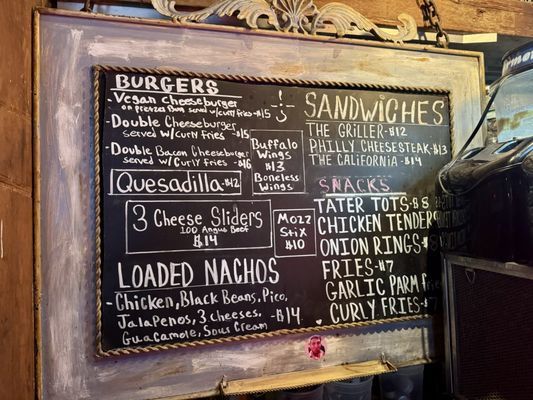 BURGERS
- Vegan Cheeseburger
on pretzel Bun served w/curly fries -$15
- Double Cheeseburger
served w/curly fries -$15
- Double Bacon Cheeseburger
served w/Curly fries -$16
Buffalo
Wings
-$13
Boneless
Wings
Quesadilla -$12
3 Cheese Sliders
100 Angus Beef
$14
Mozz
Stix
$10
LOADED NACHOS
- Chicken, Black Beans, Pico,
Jalapenos, 3 cheeses, -$14
Guacamole, Sour Cream
SANDWICHES
THE GRILLER -$12
PHILLY CHEESESTEAK -$13
THE CALIFORNIA -$14
SNACKS
TATER TOTS -$8
CHICKEN TENDERS
ONION RINGS
FRIES -$7
GARLIC PARM
CURLY FRIES